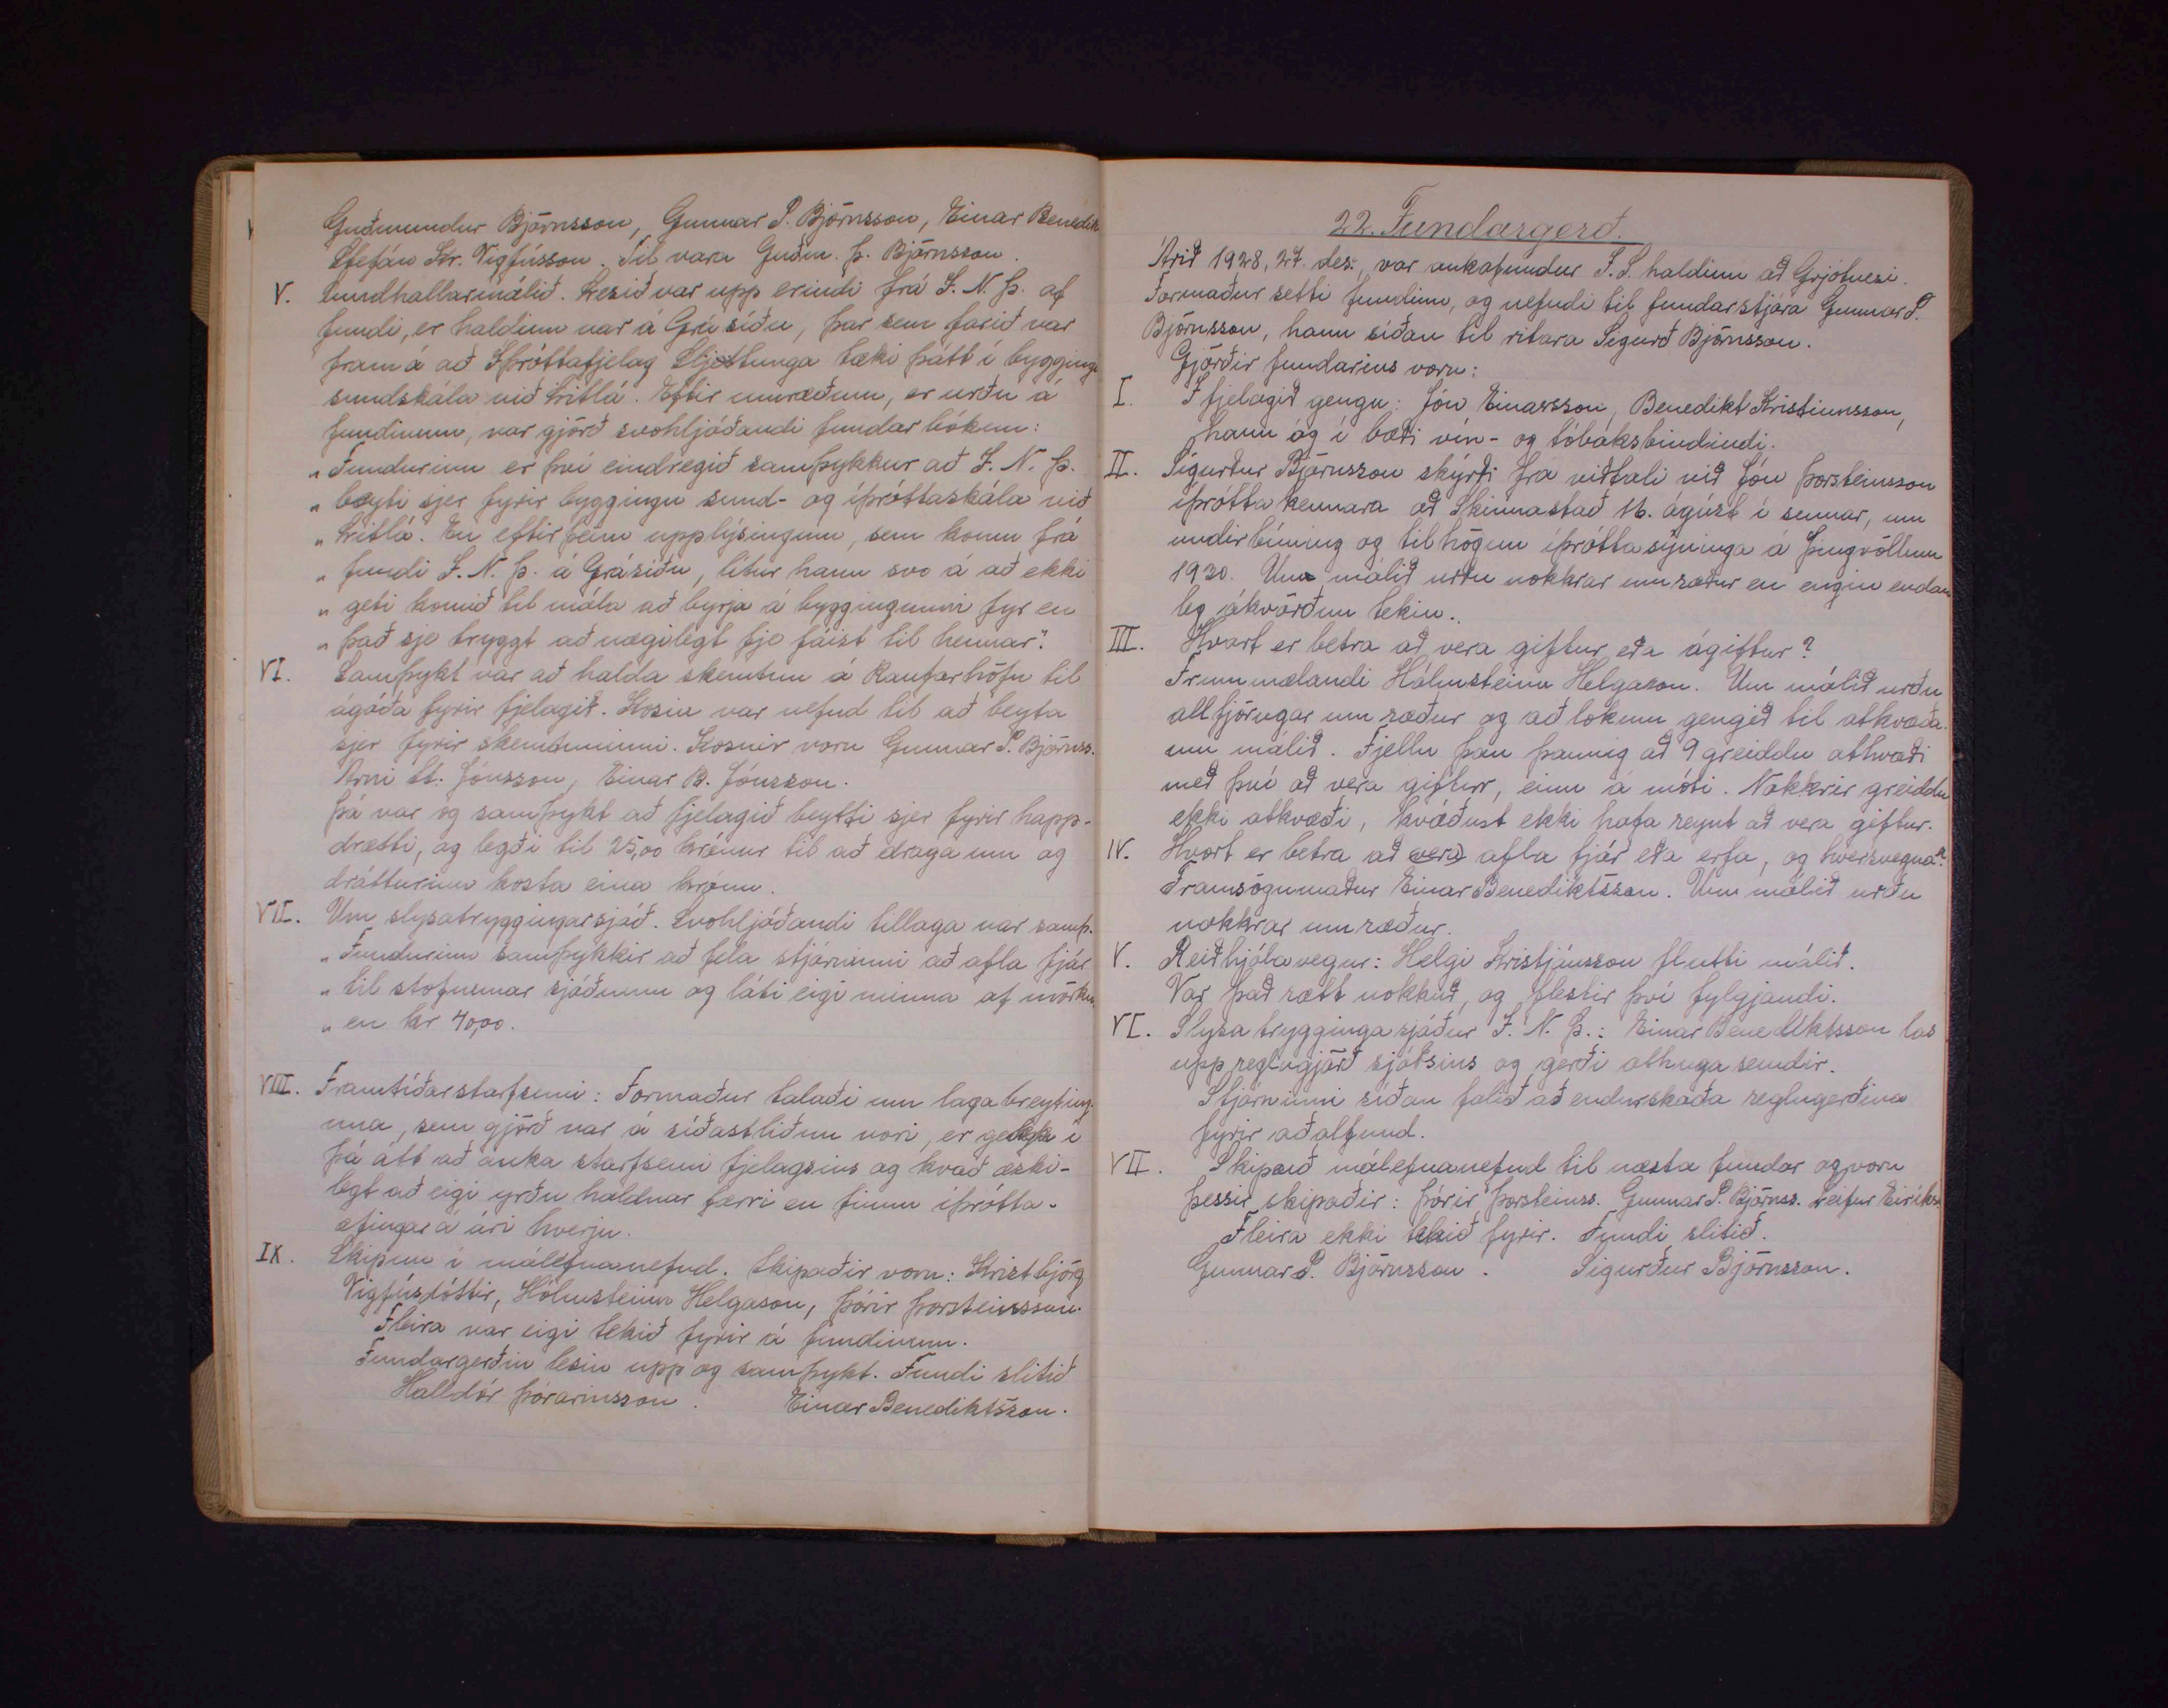 Guðmundur Björnsson, Gunnar P. Björnsson, Einar Benedik
Stefán Kr. Vigfússon. Til vara Guðm. Þ. Björnsson.
V. Sundhallarmálið. Lesið var upp erindi frá I. N. Þ. af
fundi, er haldinn var á Grásíðu, þar sem farið var
fram á að Íþróttafjelag Sljettunga tæki þátt í bygging
sundskála við Litlá. Eftir umræðum, er urðu á
fundinum, var gjörð svohljóðandi fundarbókun:
„Fundurinn er því eindregið samþykkur að I. N. Þ.
„beyti sjer fyrir byggingu sund- og íþróttaskála við
„Litlá. En eftir þeim upplýsingum, sem komu frá
„fundi I. N. Þ. á Grásíðu, lítur hann svo á að ekki
„geti komið til mála að byrja á byggingunni fyr en
„það sje tryggt að nægilegt fje fáist til hennar".
VI. Samþykt var að halda skemtun á Raufarhöfn til
ágóða fyrir fjelagið. Kosin var nefnd til að beyta
sjer fyrir skemtuninni. Kosnir voru Gunnar P. Björnss.
Árni St. Jónsson, Einar B. Jónsson.
Þá var og samþykt að fjelagið beytti sjer fyrir happ-
drætti, og legði til 25,00 krónur til að draga um og
drátturinn kosta eina krónu.
VII. Um slysatryggingarsjóð. Svohljóðandi tillaga var samþ.
„Fundurinn samþykkir að fela stjórninni að afla fjár
„til stofnunar sjóðnum og láti eigi minna af mörkum
„en kr 40,00.
VIII. Framtíðarstarfsemi: Formaður talaði um lagabreyting-
una, sem gjörð var á síðastliðnu vori, er gekk í
þá átt að auka starfsemi fjelagsins og kvað æski-
legt að eigi yrðu haldnar færri en fimm íþrótta-
æfingar á ári hverju.
IX. Skipun í málefnanefnd. Skipaðir voru: Kristbjörg
Vigfúsdóttir, Hólmsteinn Helgason, Þórir Þorsteinsson.
Fleira var eigi tekið fyrir á fundinum.
Fundargerðin lesin upp og samþykt. Fundi slitið
Halldór Þórarinsson. Einar Benediktsson.
22. Fundargerð.
Árið 1928, 27. des., var aukafundur Í.S. haldinn að Grjótnesi.
Formaður setti fundinn, og nefndi til fundarstjóra Gunnar P.
Björnsson, hann síðan til ritara Sigurð Björnsson.
Gjörðir fundarins voru:
I. Í fjelagið gengu: Jón Einarsson, Benedikt Kristinnsson,
hann óg í bæði vín- og tóbaksbindindi.
II. Sigurður Björnsson skýrði frá viðtali við Jón Þorsteinsson
íþróttakennara að Skinnastað 16. ágúst í sumar, um
undirbúning og tilhögun íþróttasýninga á Þingvöllum
1930. Um málið urðu nokkrar umræður en engin endan
leg ákvörðun tekin.
III. Hvort er betra að vera giftur eða ógiftur?
Frummælandi Hólmsteinn Helgason. Um málið urðu
allfjörugar umræður og að lokum gengið til atkvæða
um málið. Fjellu þau þannig að 9 greiddu atkvæði
með því að vera giftur, einn á móti. Nokkrir greiddu
ekki atkvæði, kváðust ekki hafa reynt að vera giftur.
IV. Hvort er betra að (vera) afla fjár eða erfa, og hversvegna?
Framsögumaður Einar Benediktsson. Um málið urðu
nokkrar umræður.
V. Reiðhjólavegur: Helgi Kristjánsson flutti málið.
Var það rætt nokkuð, og flestir því fylgjandi.
VI. Slysatryggingasjóður I. N. Þ.: Einar Benediktsson las
upp reglugjörð sjóðsins og gerði athugasemdir.
Stjórninni síðan falið að endurskoða reglugerðina
fyrir aðalfund.
VII. Skipað málefnanefnd til næsta fundar og voru
þessir skipaðir: Þórir Þorsteinss. Gunnar P. Björnss. Leifur Eiríkss
Fleira ekki tekið fyrir. Fundi slitið.
Gunnar P. Björnsson. Sigurður Björnsson.